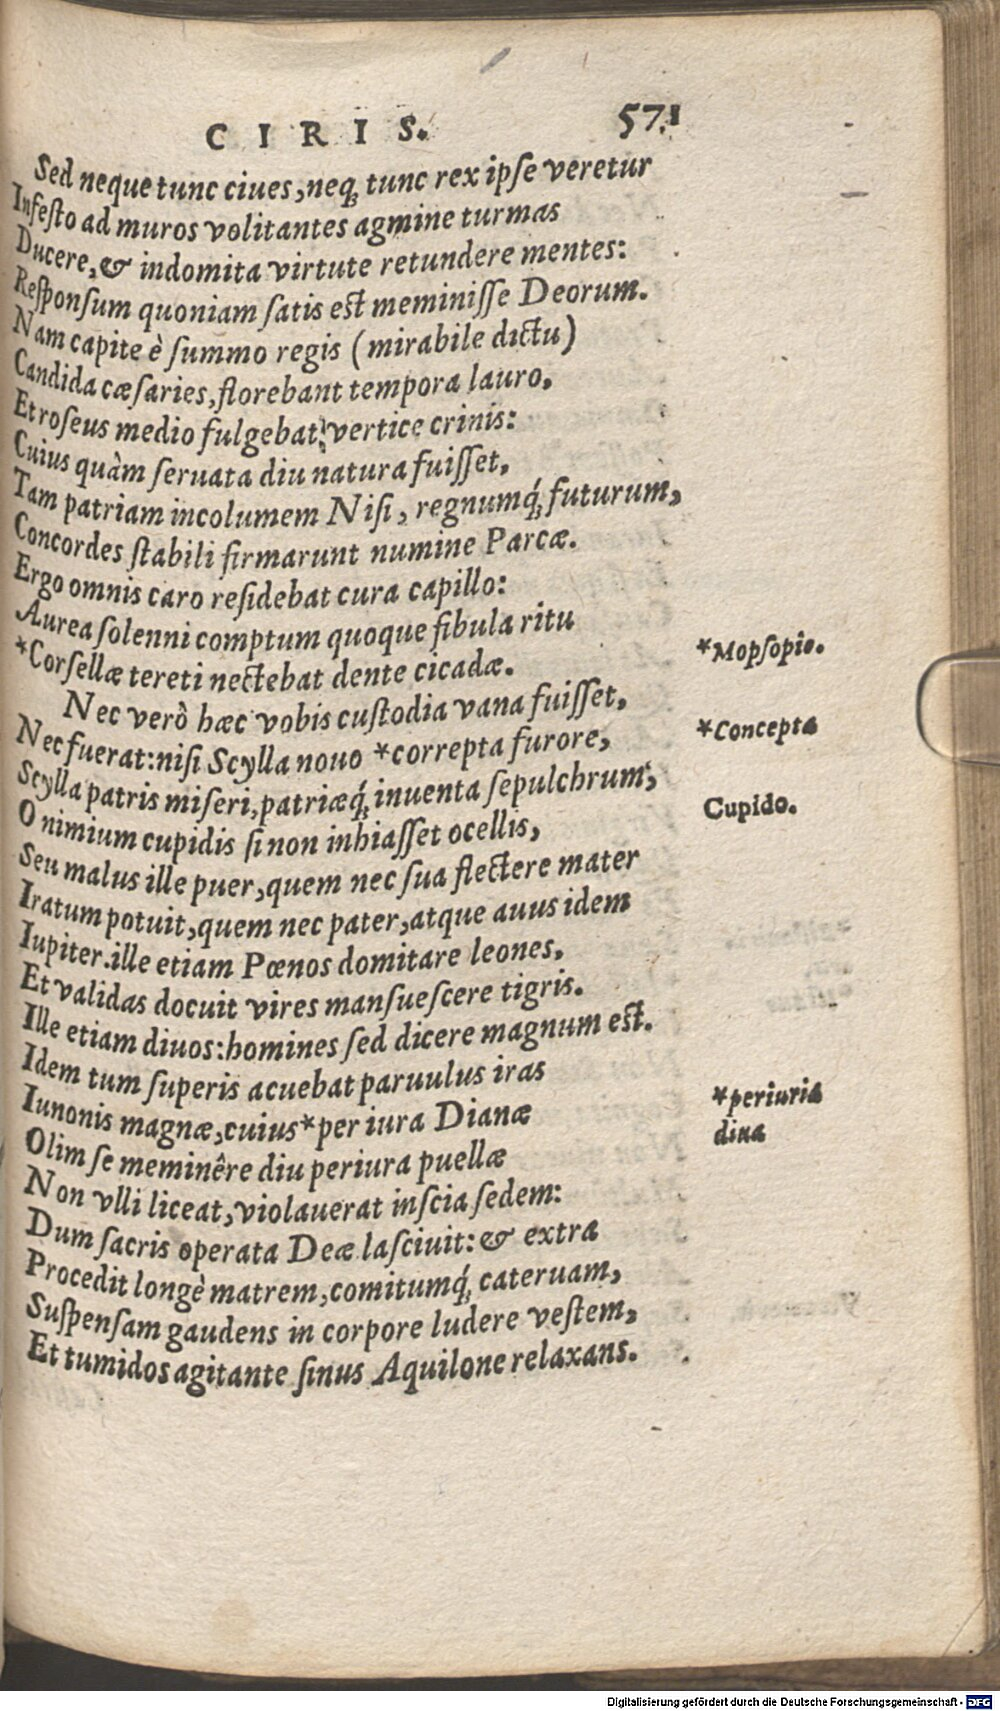 CIRIS. 571
Sed neque tunc ciues, neq; tunc rex ipſe veretur
Infeſto ad muros volitantes agmine turmas
Ducere, & indomita virtute retundere mentes:
Reſponſum quoniam ſatis eſt meminiſſe Deorum.
Nam capite è ſummo regis (mirabile dictu)
Candida cæſaries, florebant tempora lauro,
Et roſeus medio fulgebat vertice crinis:
Cuius quàm ſeruata diu natura fuiſſet,
Tam patriam incolumem Niſi, regnumq́; futurum,
Concordes ſtabili firmarunt numine Parcæ.
Ergo omnis caro reſidebat cura capillo:
Aurea ſolenni comptum quoque fibula ritu
*Corſellæ tereti nectebat dente cicadæ. *Mopſopio.
Nec verò hæc vobis cuſtodia vana fuiſſet,
Nec fuerat: niſi Scylla nouo *correpta furore, *Concepta
Scylla patris miſeri, patriæq́; inuenta ſepulchrum,
O nimium cupidis ſi non inhiaſſet ocellis, Cupido.
Seu malus ille puer, quem nec ſua flectere mater
Iratum potuit, quem nec pater, atque auus idem
Iupiter. ille etiam Pœnos domitare leones,
Et validas docuit vires manſueſcere tigris.
Ille etiam diuos: homines ſed dicere magnum eſt.
Idem tum ſuperis acuebat paruulus iras
Iunonis magnæ, cuius *per iura Dianæ *periuria
Olim ſe meminêre diu periura puellæ diua
Non vlli liceat, violauerat inſcia ſedem:
Dum ſacris operata Deæ laſciuit: & extra
Procedit longè matrem, comitumq́; cateruam,
Suſpenſam gaudens in corpore ludere veſtem,
Et tumidos agitante ſinus Aquilone relaxans.
Digitalisierung gefördert durch die Deutsche Forschungsgemeinschaft - DFG